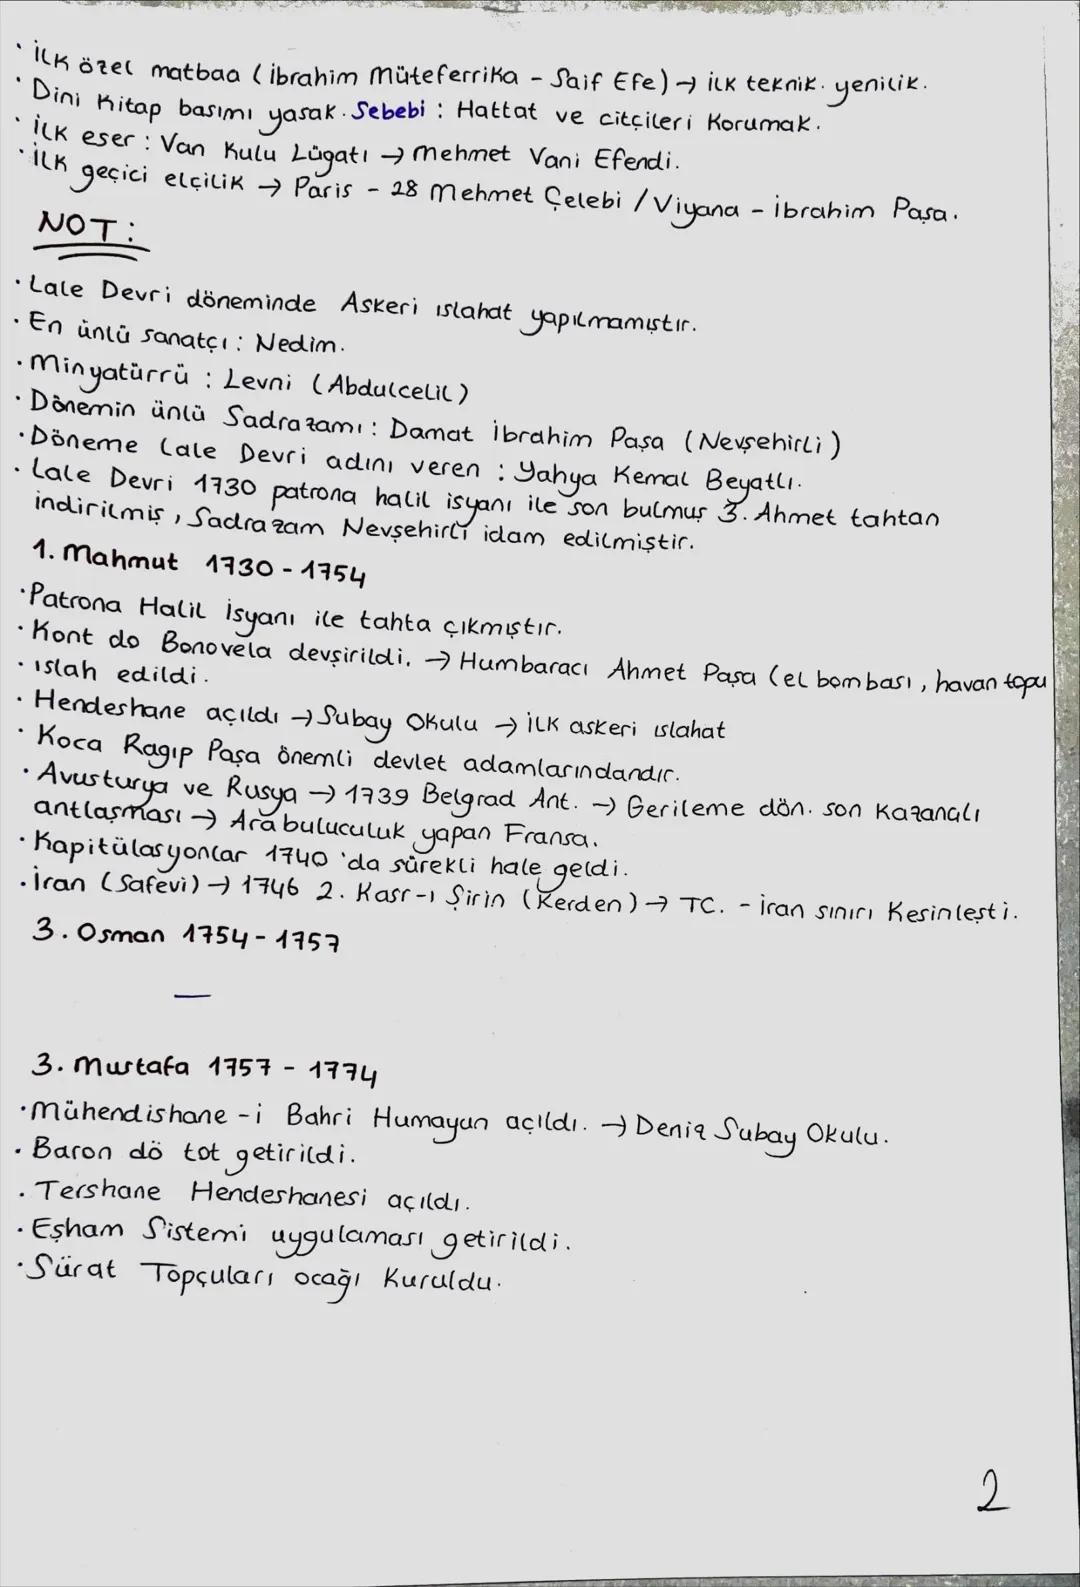 · İlk özel matbaa (İbrahim Müteferrika - Saif Efe) → ilk teknik. yenilik.
· Dini kitap basımı yasak. Sebebi : Hattat ve citçileri korumak.
· İlk eser : Van Kulu Lügatı → Mehmet Vani Efendi.
· İlk geçici elçilik → Paris - 28 Mehmet Çelebi / Viyana - İbrahim Paşa.
NOT :
· Lale Devri döneminde Askeri ıslahat yapılmamıştır.
· En ünlü sanatçı : Nedim.
· Minyatürrü : Levni (Abdulcelil)
· Dönemin ünlü Sadrazamı : Damat İbrahim Paşa (Nevşehirli)
· Döneme Lale Devri adını veren : Yahya Kemal Beyatlı.
· Lale Devri 1730 patrona halil isyanı ile son bulmuş 3. Ahmet tahtan
indirilmiş, Sadrazam Nevşehirli idam edilmiştir.
1. Mahmut 1730 - 1754
· Patrona Halil İsyanı ile tahta çıkmıştır.
· Kont do Bonovela devşirildi. → Humbaracı Ahmet Paşa (el bombası, havan topu
· ıslah edildi.
· Hendeshane açıldı → Subay Okulu → İlk askeri ıslahat
· Koca Ragıp Paşa önemli devlet adamlarındandır.
· Avusturya ve Rusya → 1739 Belgrad Ant. → Gerileme dön. son kazançlı
antlaşması → Arabuluculuk yapan Fransa.
· Kapitülasyonlar 1740 'da sürekli hale geldi.
· İran (Safevi) → 1746 2. Kasr-ı Şirin (Kerden) → TC. - İran sınırı kesinleşti.
3. Osman 1754 - 1757
—
3. Mustafa 1757 - 1774
· Mühendishane -i Bahri Humayun açıldı. → Deniz Subay Okulu.
· Baron dö tot getirildi.
· Tershane Hendeshanesi açıldı.
· Eşham Sistemi uygulaması getirildi.
· Sürat Topçuları ocağı kuruldu.
2